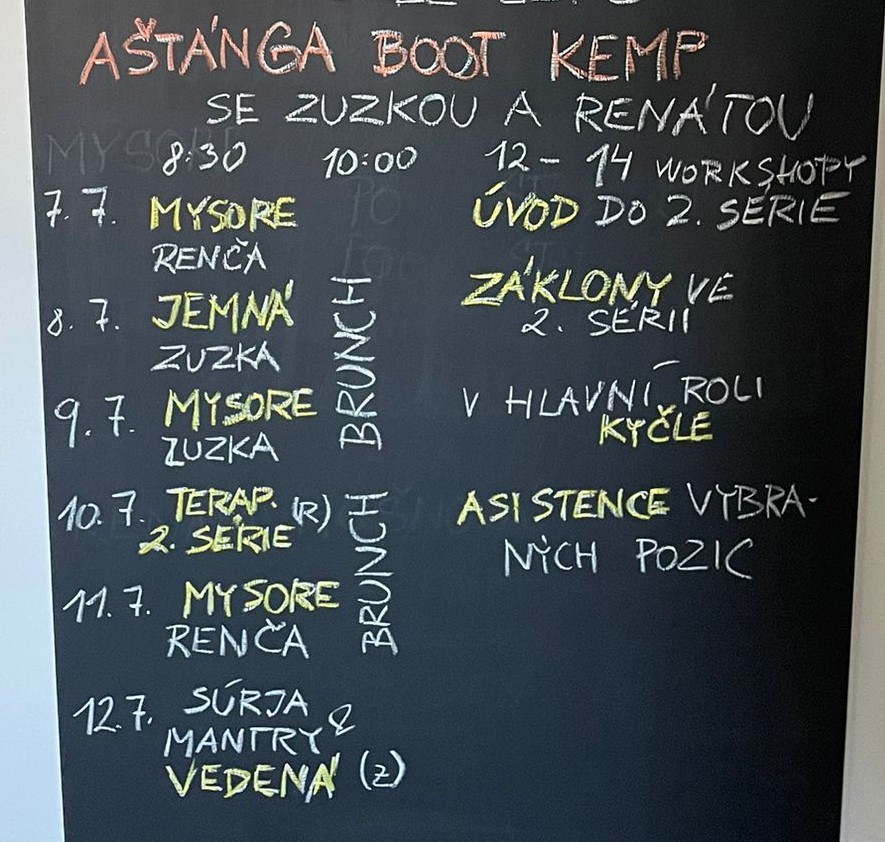 AŠTÁNGA BOOT KEMP
SE ZUZKOU A RENÁTOU
8:30 10:00 12 - 14 WORKSHOPY
7. 7. MYSORE ÚVOD DO 2. SÉRIE
RENČA
8. 7. JEMNÁ ZÁKLONY VE
2. SÉRII
ZUZKA
BRUNCH
9. 7. MYSORE V HLAVNÍ ROLI
KYČLE
ZUZKA
10. 7. TERAP. (R) ASISTENCE VYBRA-
2. SÉRIE
NÝCH POZIC
BRUNCH
11. 7. MYSORE
RENČA
12. 7. SÚRJA
MANTRY &
VEDENÁ (Z)